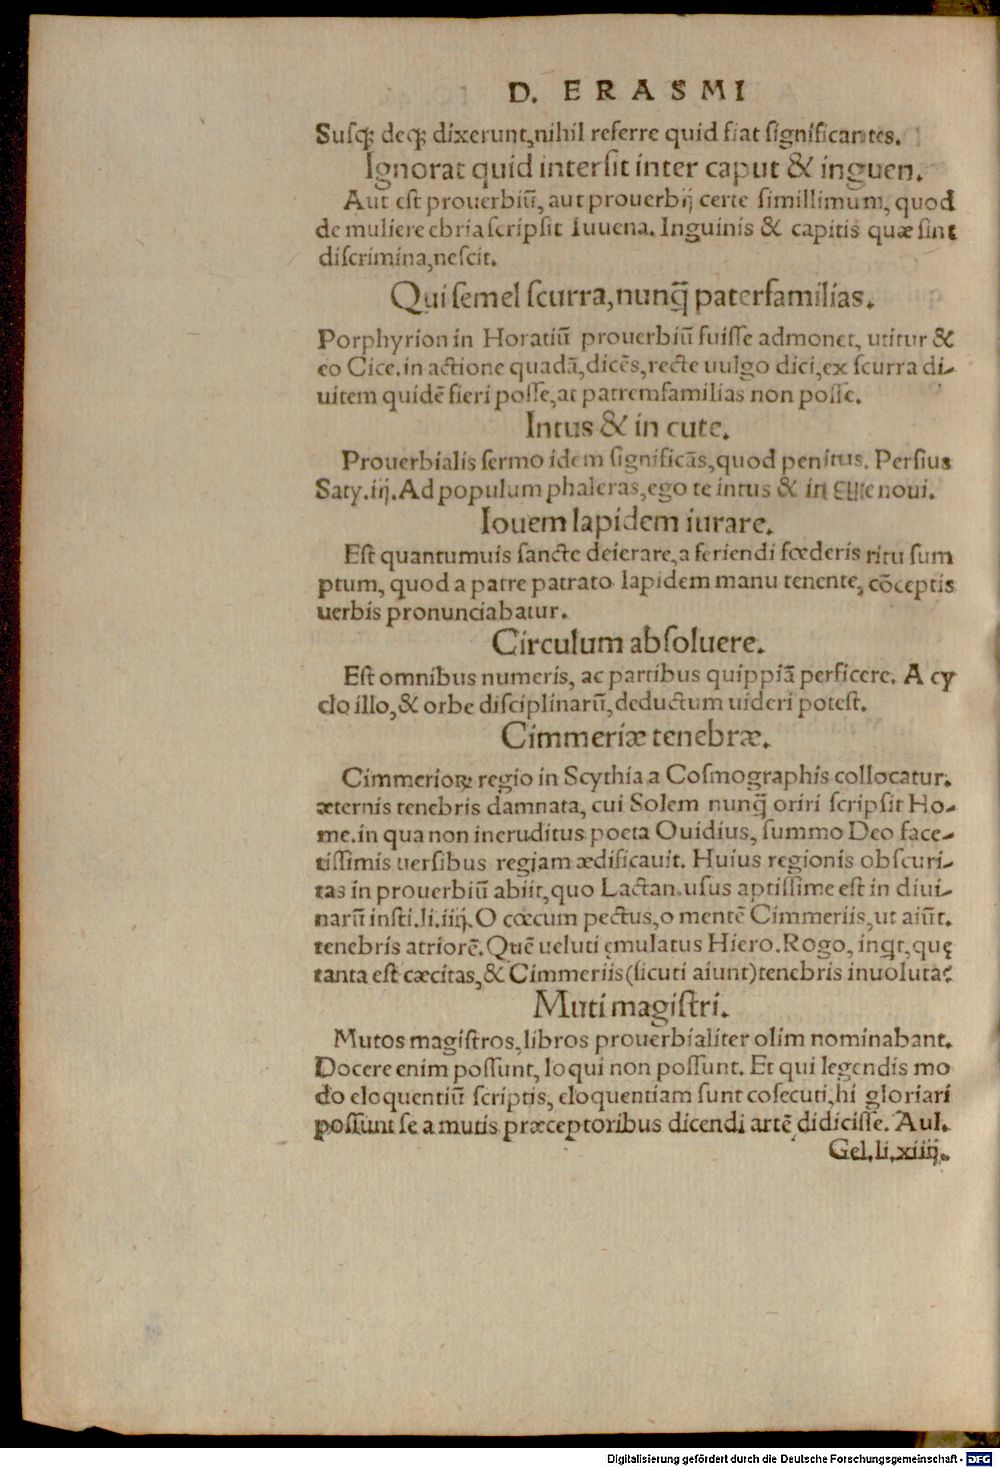 D. ERASMI
Suſqꝫ deqꝫ dixerunt, nihil referre quid fiat ſignificantes.
Ignorat quid interſit inter caput & inguen.
Aut eſt prouerbiũ, aut prouerbij certe ſimillimum, quod
de muliere ebria ſcripſit Iuuena. Inguinis & capitis quæ ſint
diſcrimina, neſcit.
Qui ſemel ſcurra, nunq̃ paterfamilias.
Porphyrion in Horatiũ prouerbiũ fuiſſe admonet, utitur &
eo Cice. in actione quadã, dicẽs, recte uulgo dici, ex ſcurra di-
uitem quidẽ fieri poſſe, at patremfamilias non poſſe.
Intus & in cute.
Prouerbialis ſermo idem ſignificãs, quod penitus. Perſius
Saty. iij. Ad populum phaleras, ego te intus & in cute noui.
Iouem lapidem iurare.
Eſt quantumuis ſancte deierare, a feriendi fœderis ritu ſum
ptum, quod a patre patrato lapidem manu tenente, cõceptis
uerbis pronunciabatur.
Circulum abſoluere.
Eſt omnibus numeris, ac partibus quippiã perficere. A cy
clo illo, & orbe diſciplinarũ, deductum uideri poteſt.
Cimmeriæ tenebræ.
Cimmerioꝝ regio in Scythia a Coſmographis collocatur.
æternis tenebris damnata, cui Solem nunq̃ oriri ſcripſit Ho-
me. in qua non ineruditus poeta Ouidius, ſummo Deo face-
tiſſimis uerſibus regiam ædificauit. Huius regionis obſcuri-
tas in prouerbiũ abiit, quo Lactan. uſus aptiſſime eſt in diui-
narũ inſti. li. iiij. O cœcum pectus, o mentẽ Cimmeriis, ut aiũt.
tenebris atriorẽ. Quẽ ueluti ęmulatus Hiero. Rogo, inqt, quę
tanta eſt cæcitas, & Cimmeriis (ſicuti aiunt) tenebris inuoluta?
Muti magiſtri.
Mutos magiſtros, libros prouerbialiter olim nominabant.
Docere enim poſſunt, loqui non poſſunt. Et qui legendis mo
do eloquentiũ ſcriptis, eloquentiam ſunt coſecuti, hi gloriari
poſſunt ſe a mutis præceptoribus dicendi artẽ didiciſſe. Aul.
Gel. li. xiiij.
Digitalisierung gefördert durch die Deutsche Forschungsgemeinschaft - DFG